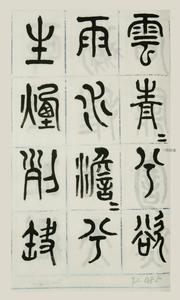 雲青〻兮欲
雨水澹〻兮
生煙列缺